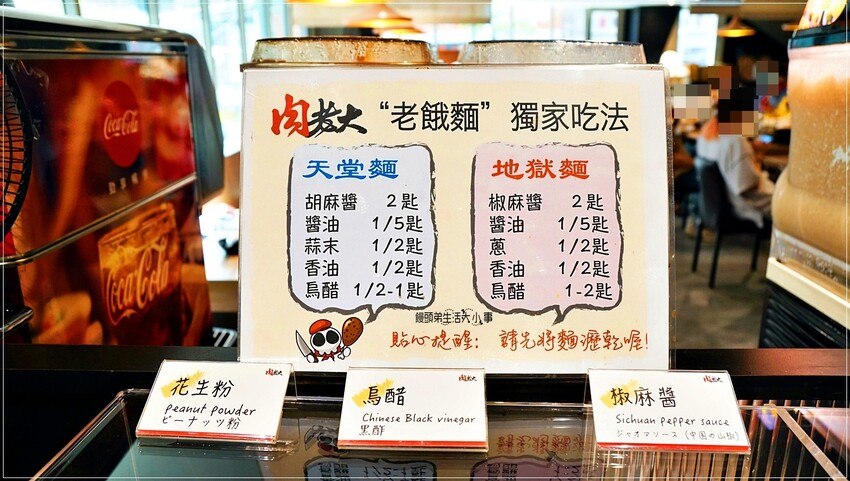 肉老大 “老餓麵” 獨家吃法
天堂麵
胡麻醬 2匙
醬油 1/5匙
蒜末 1/2匙
香油 1/2匙
烏醋 1/2-1匙
地獄麵
椒麻醬 2匙
醬油 1/5匙
蔥 1/2匙
香油 1/2匙
烏醋 1-2匙
饅頭弟生活大小事
貼心提醒: 請先將麵瀝乾喔!
Coca-Cola
Coca-Cola
肉老大
花生粉
peanut powder
ピーナッツ粉
肉老大
烏醋
Chinese Black vinegar
黒酢
肉老大
椒麻醬
Sichuan pepper sauce
ジャオマソース (中国の山椒)